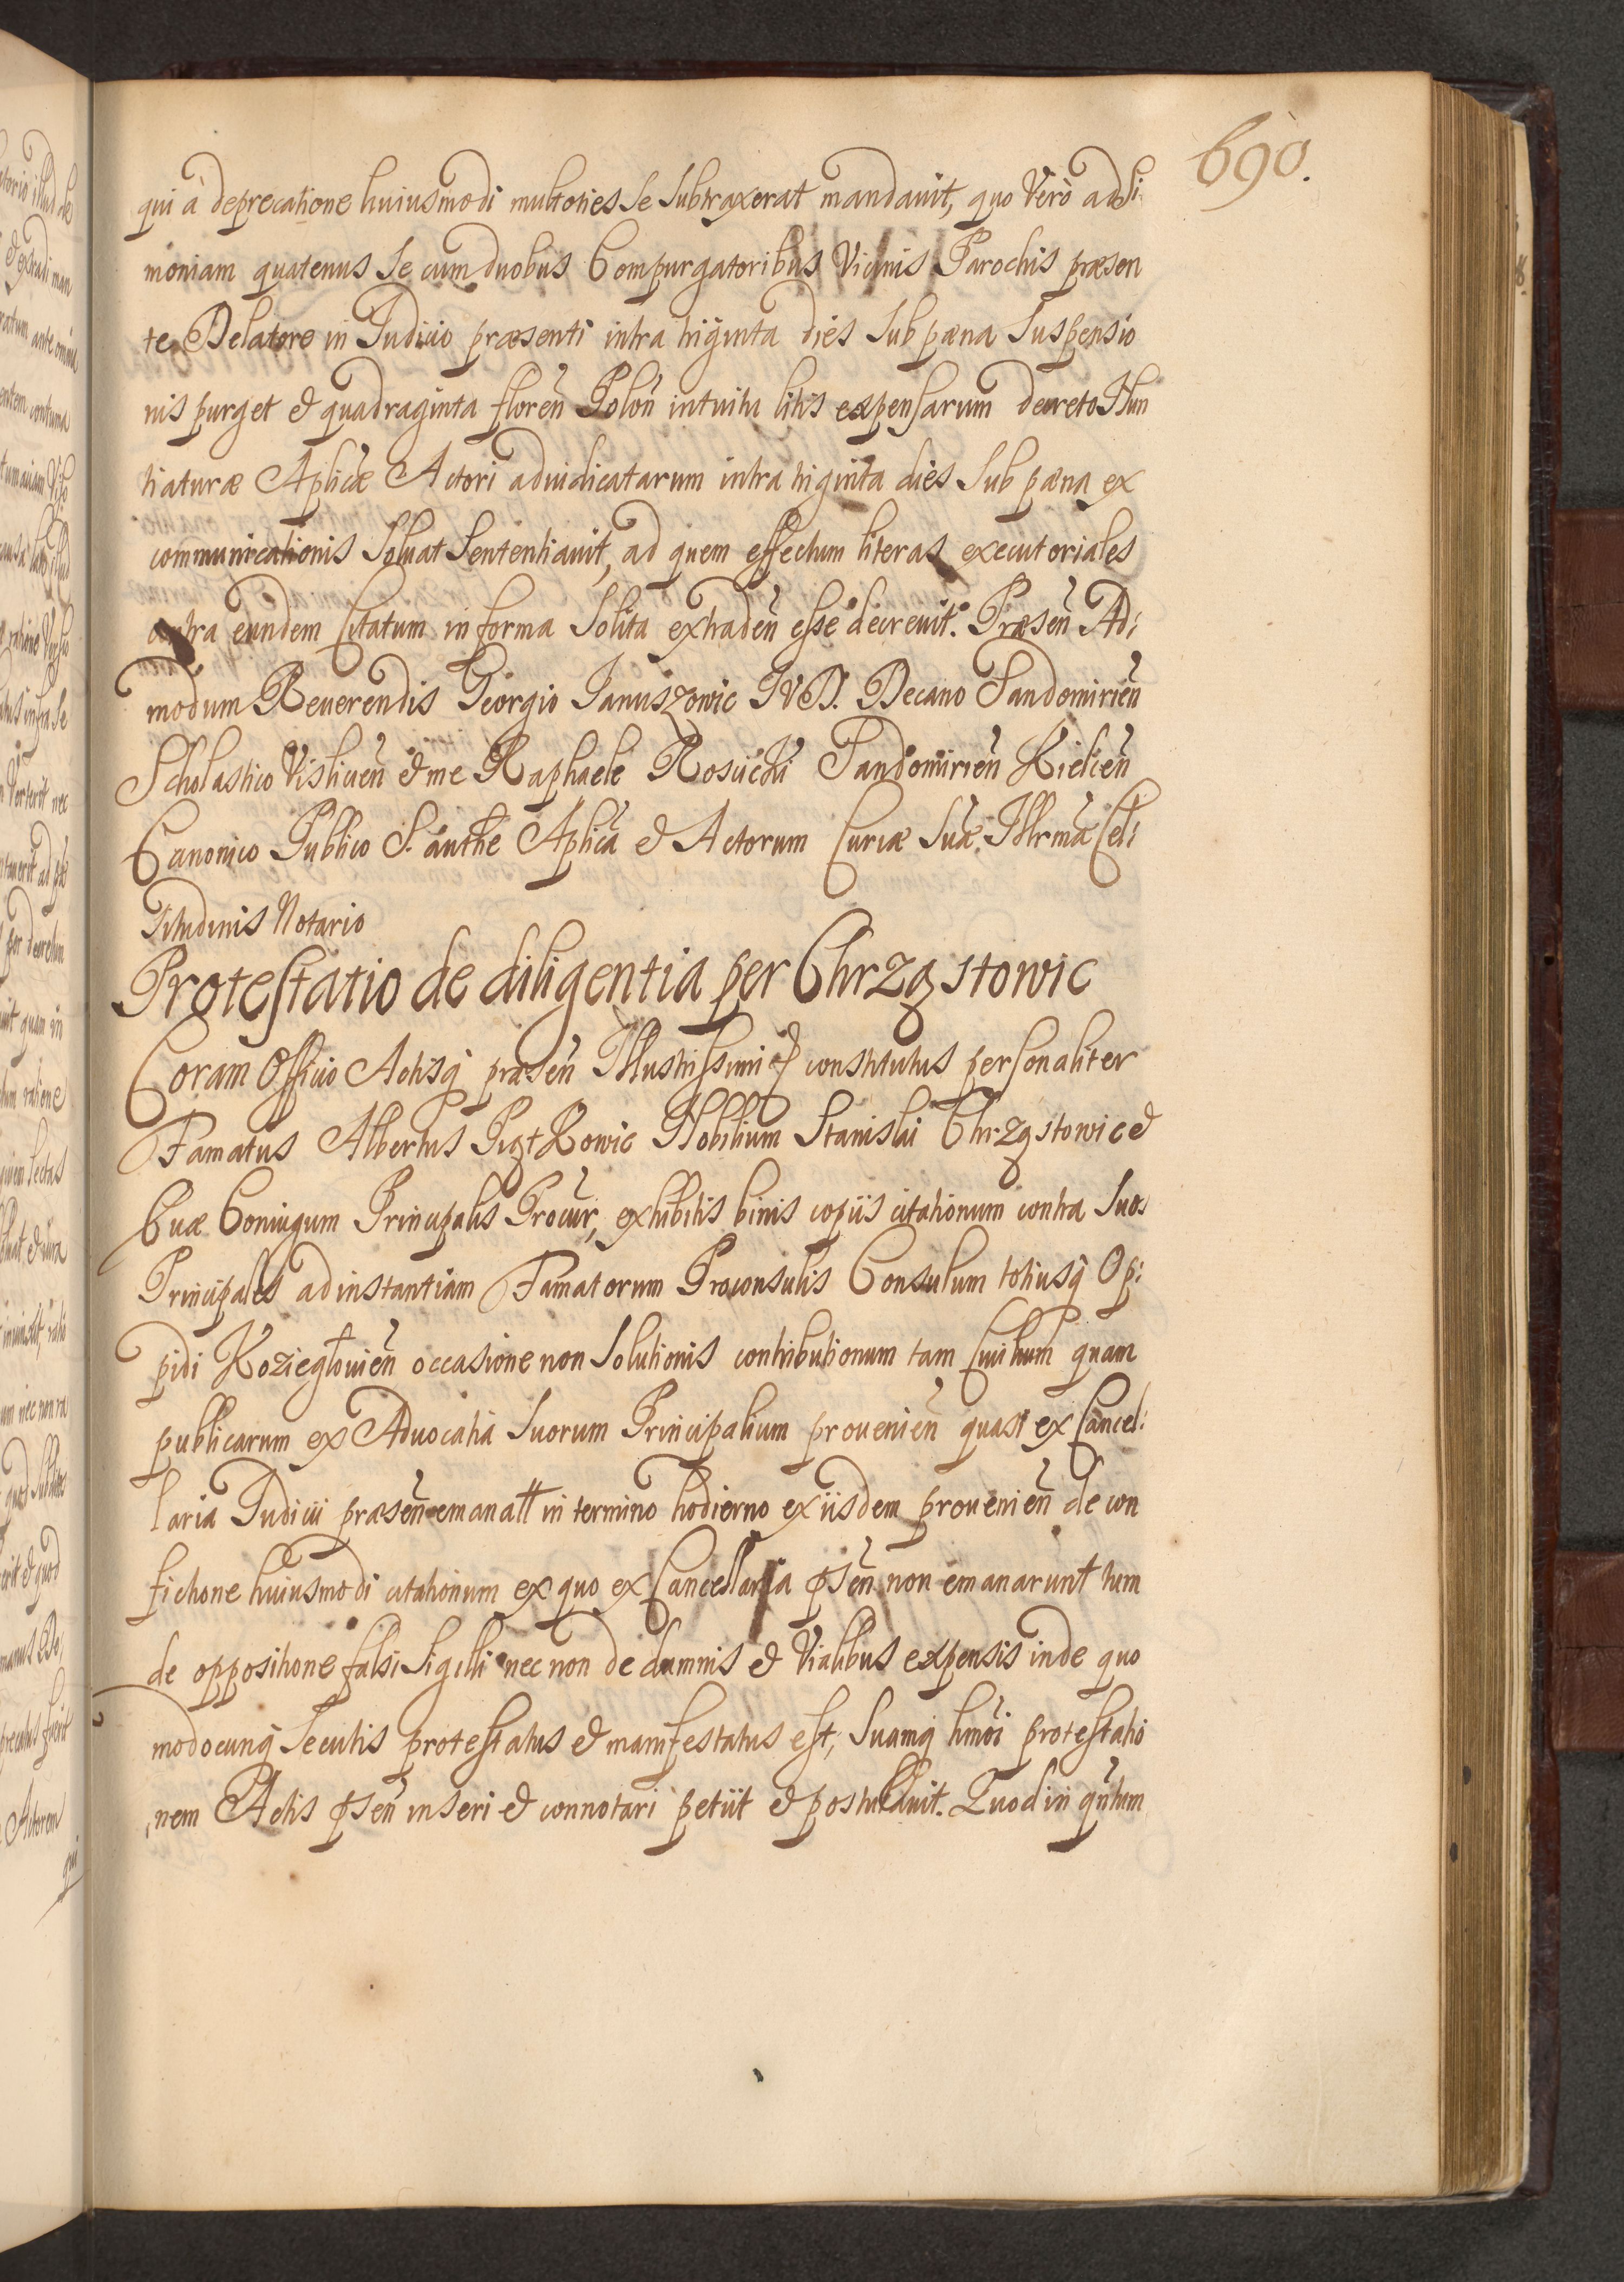 690.
qui à deprecatione huiusmodi multoties se subtraxerat mandauit, quo Verò ad Si
moniam quatenus se cum duobus Compurgatoribus Vicinis Parochis præsen
te Delatore in Iudicio præsenti intra triginta dies sub pæna suspensio
nis purget & quadraginta floreñ Poloñ intuitu litis expensarum decreto Nun
tiaturæ Aplicæ Actori adiudicatarum intra triginta dies sub pæna ex
communicationis soluat sententiauit, ad quem effectum literas executoriales
contra eundem Citatum in forma solita extradeñ esse decreuit. Præseñ Ad:
modum Reuerendis Georgio Januszowic IVD. Decano Sandomirieñ
Scholastico Visliceñ & me Raphaele Rosiicki Sandomirieñ Kielceñ
Canonico Publico S. authe Aplica & Actorum Curiæ Suæ Illrmæ Cel:
situdinis Notario
Protestatio de diligentia per Chrząstowic
Coram Officio Actisq præseñ Illustrissimi & constitutus personaliter
Famatus Albertus Piątkowic Nobilium Stanislai Chrząstowic &
Euæ Coniugum Principalis Procur, exhibitis binis copiis citationum contra suos
Principales ad instantiam Famatorum Proconsulis Consulum totiusq Op:
pidi Koziegłouieñ occasione non solutionis contributionum tam Ciuilium quam
publicarum ex Aduocatia suorum Principalium prouenieñ quasi ex Cancel:
laria Iudicii præseñ emanatt in termino hodierno ex iisdem prouenieñ de con
fictione huiusmodi citationum ex quo ex Cancellaria pseñ non emanarunt tum
de oppositione falsi Sigilli nec non de damnis & Vialibus expensis inde quo
modocunq secutis protestatus & manifestatus est, suamq hmoi protestatio
nem Actis pseñ inseri & connotari petiit & postulauit. Quod in qntum